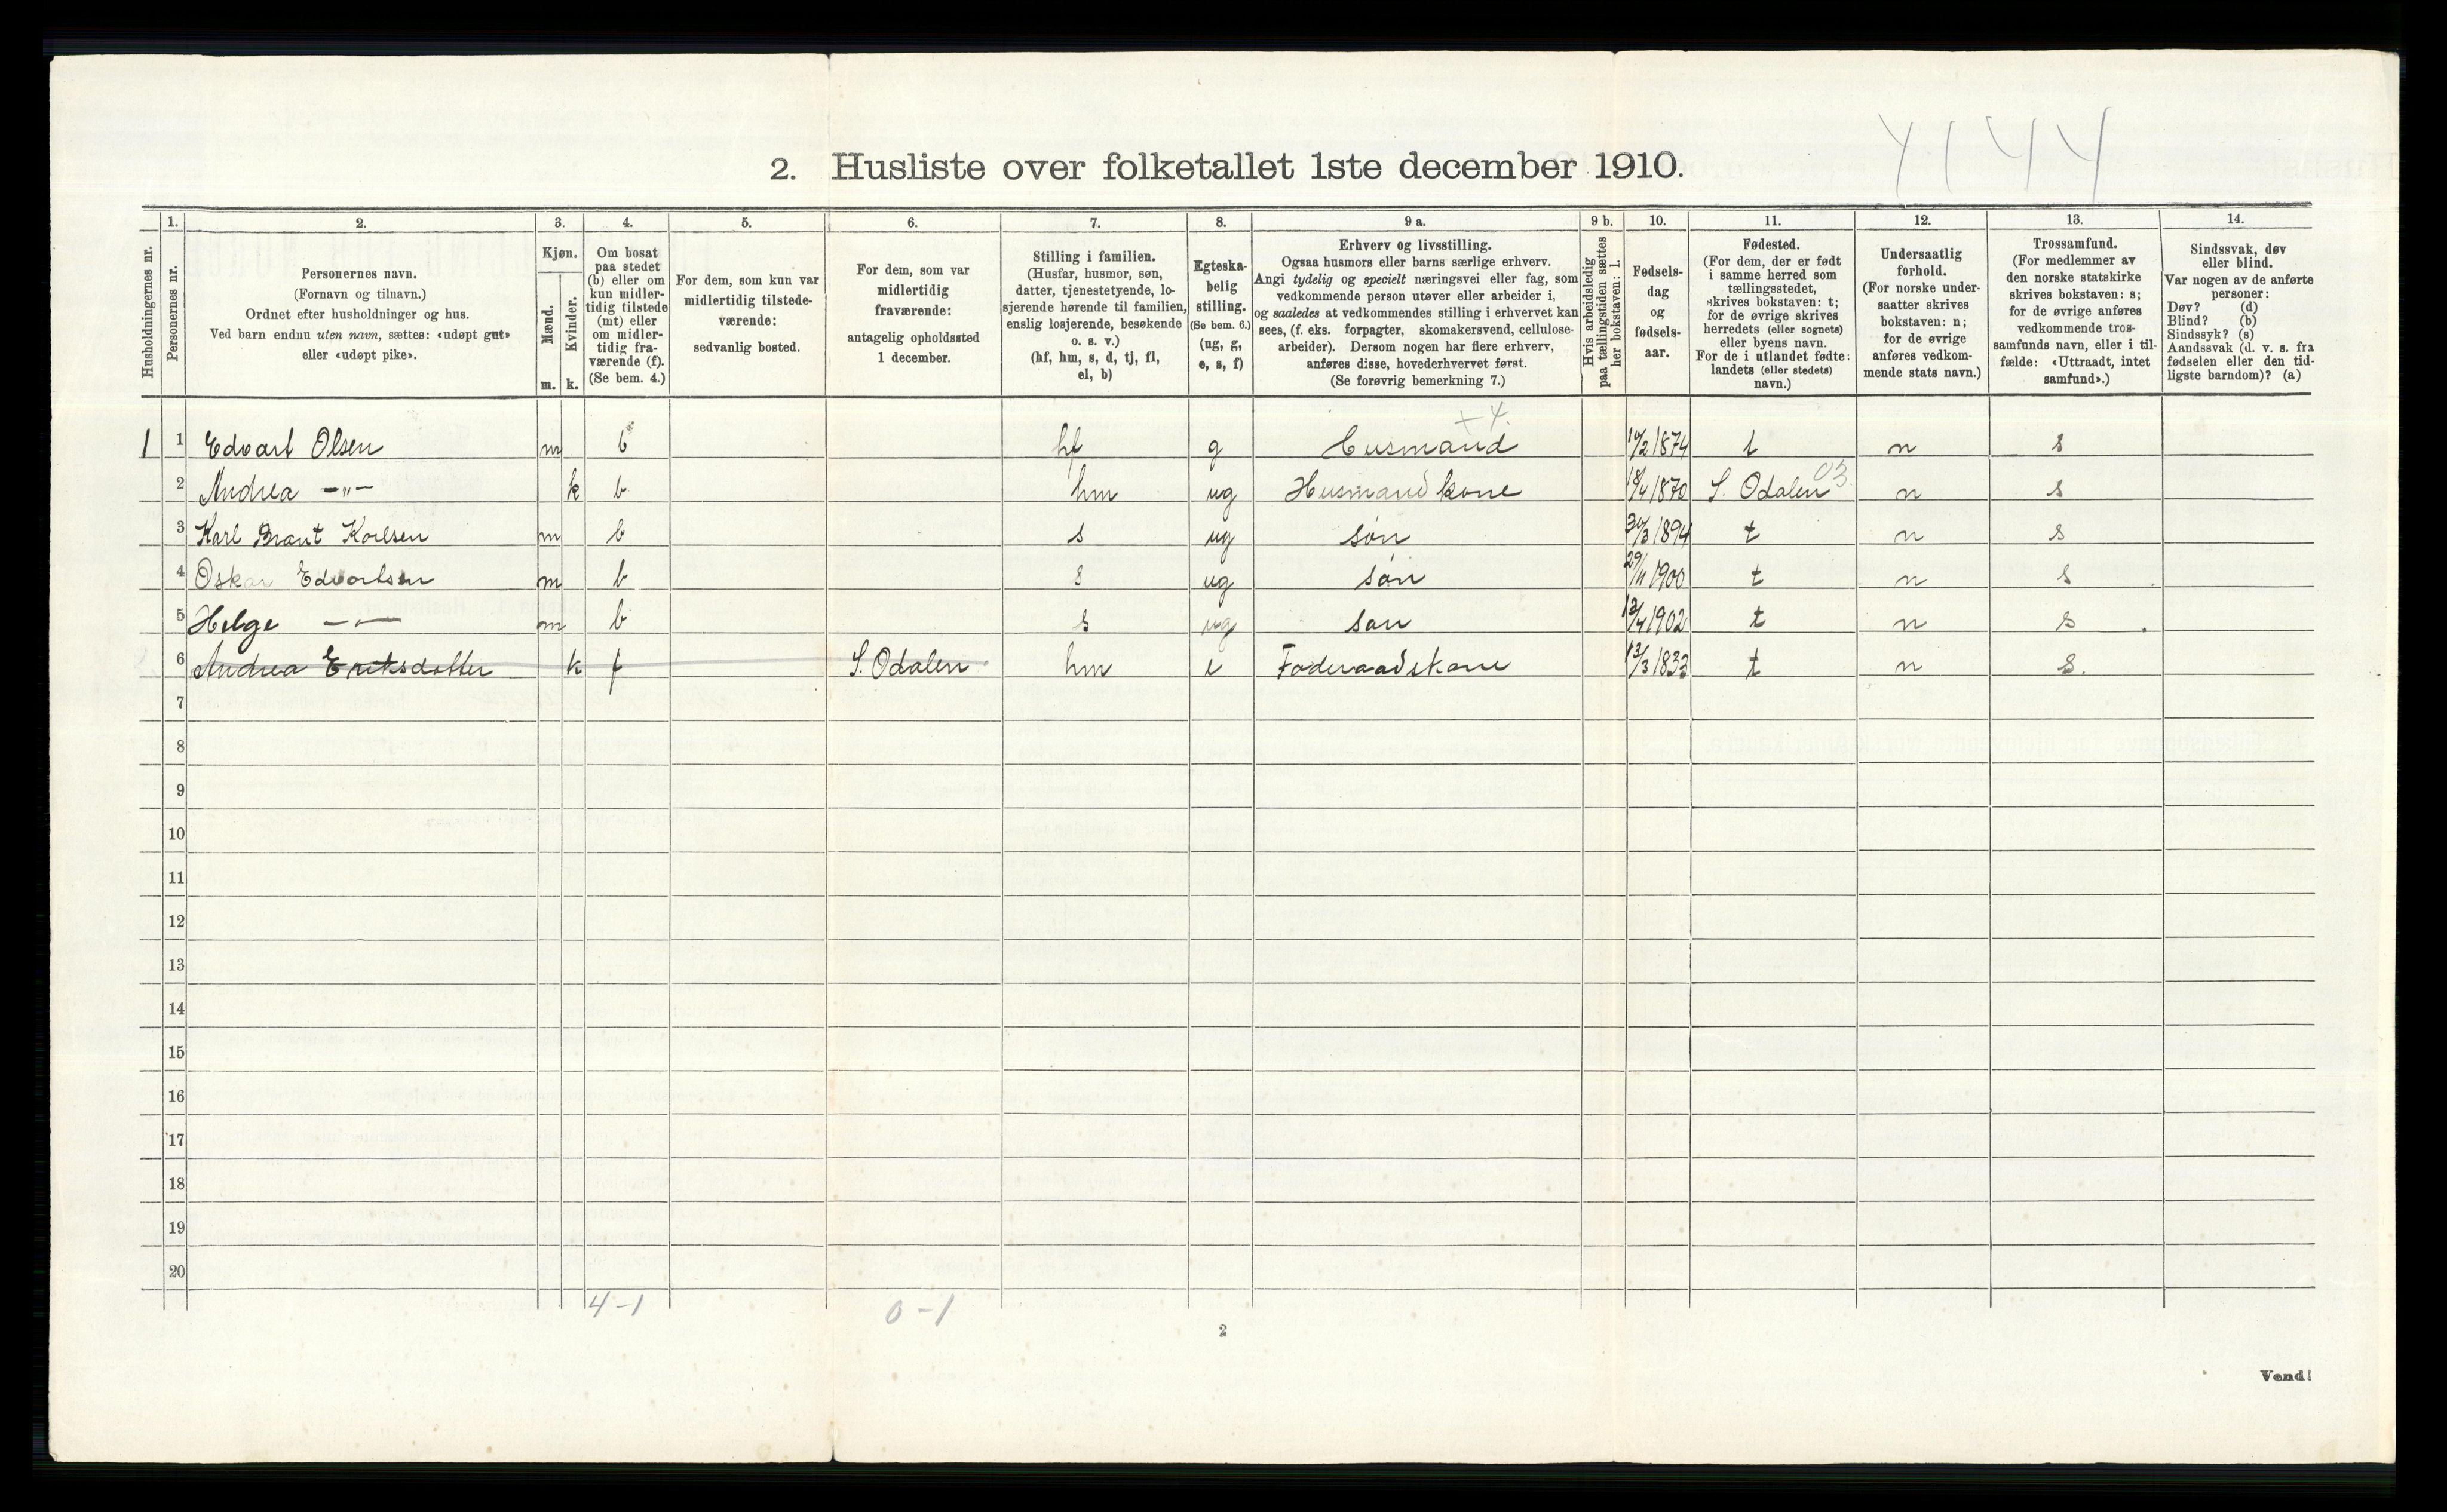 4144
2. Husliste over folketallet 1ste december 1910.
Husholdningernes nr.
1.
Personernes nr.
2.
Personernes navn.
(Fornavn og tilnavn.)
Ordnet efter husholdninger og hus.
Ved barn endnu uten navn, sættes: «udøpt gut»
eller «udøpt pike».
3.
Kjøn.
Mænd.
Kvinder.
m. k.
4.
Om bosat
paa stedet
(b) eller om
kun midler-
tidig tilstede
(mt) eller
om midler-
tidig fra-
værende (f).
(Se bem. 4.)
5.
For dem, som kun var
midlertidig tilstede-
værende:
sedvanlig bosted.
6.
For dem, som var
midlertidig
fraværende:
antagelig opholdssted
1 december.
7.
Stilling i familien.
(Husfar, husmor, søn,
datter, tjenestetyende, lo-
sjerende hørende til familien,
enslig losjerende, besøkende
o. s. v.)
(hf, hm, s, d, tj, fl,
el, b)
8.
Egteska-
belig
stilling.
(Se bem. 6.)
(ug, g,
e, s, f)
9 a.
Erhverv og livsstilling.
Ogsaa husmors eller barns særlige erhverv.
Angi tydelig og specielt næringsvei eller fag, som
vedkommende person utøver eller arbeider i,
og saaledes at vedkommendes stilling i erhvervet kan
sees, (f. eks. forpagter, skomakersvend, cellulose-
arbeider). Dersom nogen har flere erhverv,
anføres disse, hovederhvervet først.
(Se forøvrig bemerkning 7.)
9 b.
Hvis arbeidsledig
paa tællingstiden sættes
her bokstaven: l.
10.
Fødsels-
dag
og
fødsels-
aar.
11.
Fødested.
(For dem, der er født
i samme herred som
tællingsstedet,
skrives bokstaven: t;
for de øvrige skrives
herredets (eller sognets)
eller byens navn.
For de i utlandet fødte:
landets (eller stedets)
navn.)
12.
Undersaatlig
forhold.
(For norske under-
saatter skrives
bokstaven: n;
for de øvrige
anføres vedkom-
mende stats navn.)
13.
Trossamfund.
(For medlemmer av
den norske statskirke
skrives bokstaven: s;
for de øvrige anføres
vedkommende tros-
samfunds navn, eller i til-
fælde: «Uttraadt, intet
samfund».)
14.
Sindssvak, døv
eller blind.
Var nogen av de anførte
personer:
Døv? (d)
Blind? (b)
Sindssyk? (s)
Aandssvak (d. v. s. fra
fødselen eller den tid-
ligste barndom)? (a)
1 1 Edvart Olsen m b hf g Husmand 1874 t n s
2 Andrea -"- k b hm ug Husmand kone 18/4 1870 S. Odalen 03 n s
3 Karl Brant Karlsen m b s ug søn 1894 t n s
4 Oskar Edvartsen m b s ug søn 29/11 1900 t n s
5 Helge -"- m b s ug søn 13/4 1902 t n s
6 Andrea Eriksdatter k f S. Odalen hm e Føderaadskone 13/3 1833 t n s.
7
8
9
10
11
12
13
14
15
16
17
18
19
20
4-1 0-1
2
Vend!